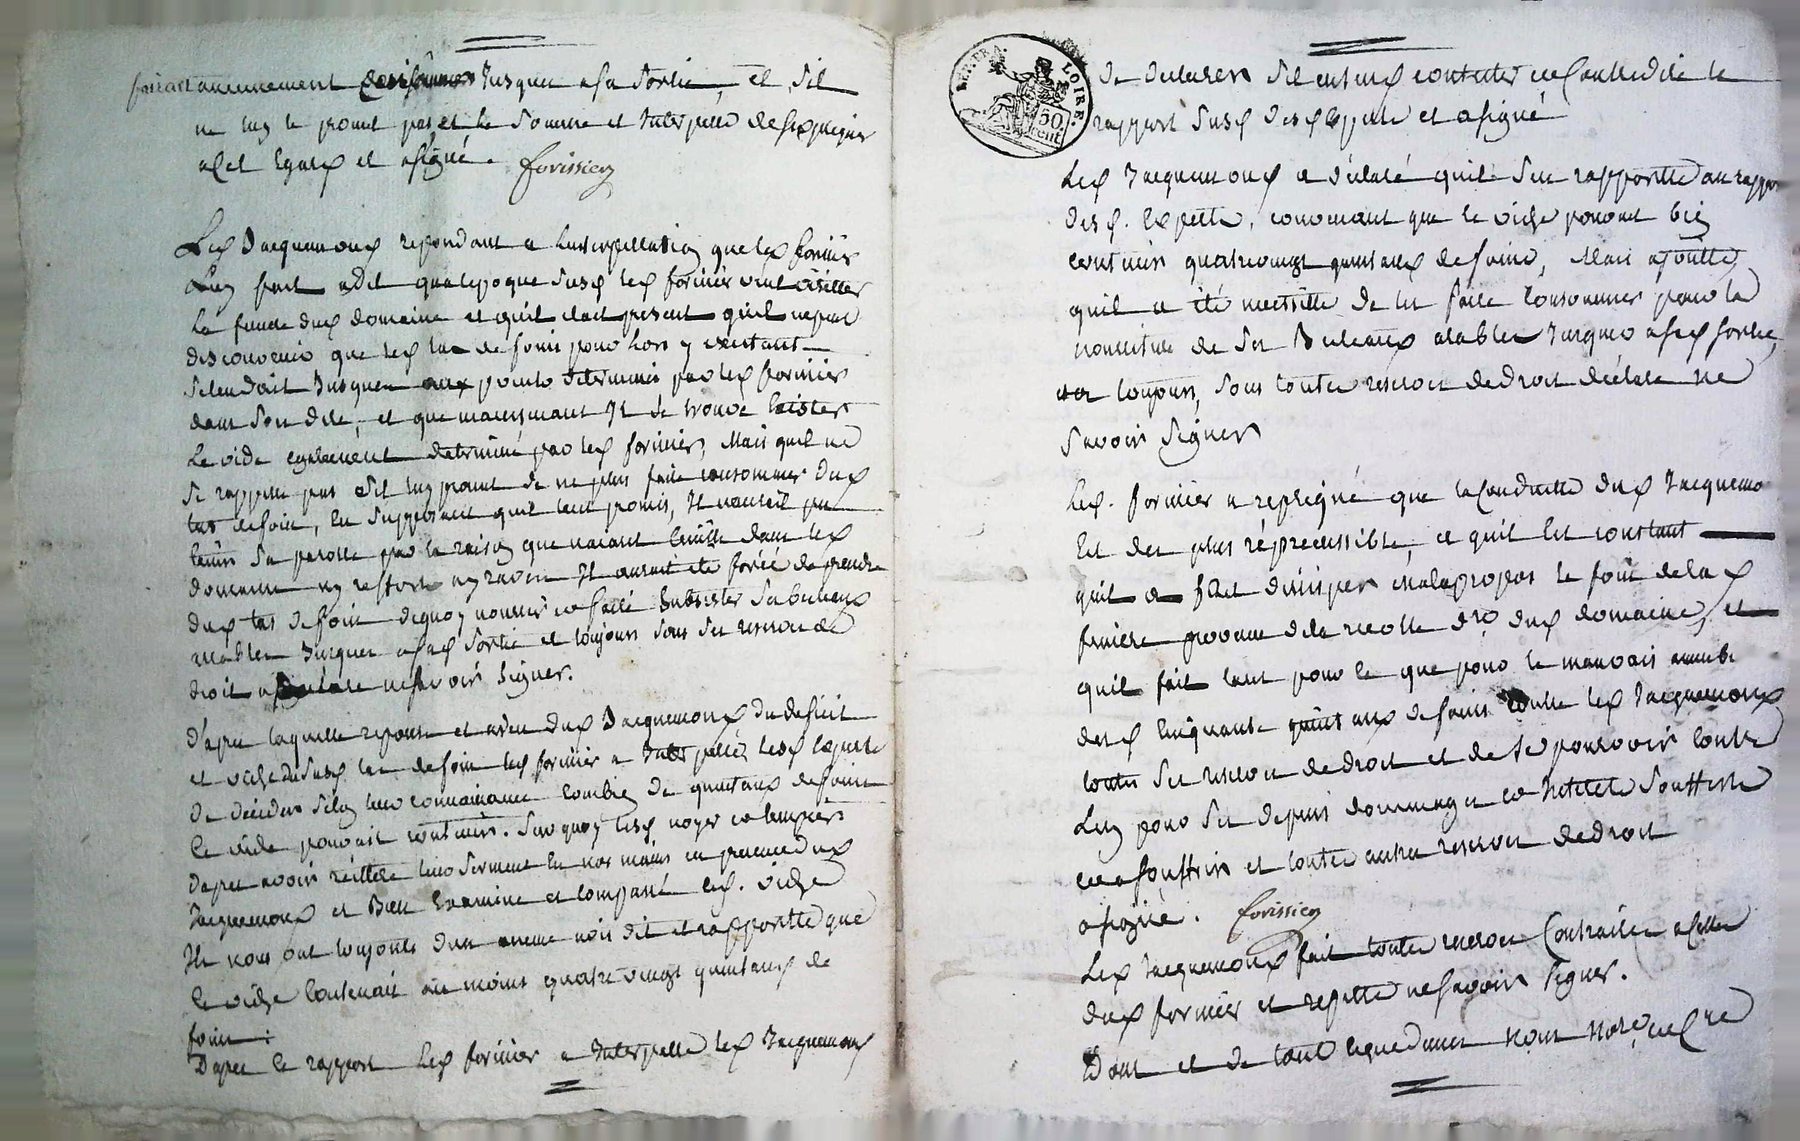 foin aucunement Jusques a sa Sortie, et Sil
ne luy le promit pas et le Somme et Interpelle de Sexpliquer
a cet Egard et a signé.
forissier
Led Jacquemoud repondant a Linterpellation que led forissier
Luy fait a dit qualepoque Susd led forissier vint visiter
La feniere dud domaine et quil etoit present quil ne peut
disconvenir que led tas de foin pour Lors y existant
Setendoit Jusques aux points determinés par led forissier
dans Son dire, et que maintenant Il Se trouve Exister
Le vide egalement determiné par led forissier, Mais quil ne
Se rappelle pas Sil luy promit de ne plus faire consommer dud
tas de foin, En Supposant quil leut promis, Il nauroit pu
tenir Sa parolle par la raison que nayant Ensuite dans led
domaine ny reffort ny ravin Il auroit eté forcé de prendre
dud tas de foin dequoy nourrir et faire Subsister Ses bestiaux
arables Jusques a Sad Sortie et toujours Sous Ses reserves de
droit a declaré ne Savoir Signer.
D'apres laquelle reponse et aveu dud Jacquemoud du deficit
et vide du Susd tas de foin led forissier a Interpellé lesd Experts
De decider Selon leur connaissance combien de quintaux de foin
le vide pouvait contenir. Sur quoy lesd noyer et
Dapres avoir réiteré leur Serment En nos mains en presence dud
Jacquemoud et Bien Examiné et comparé led. vide
Ils nous ont toujours dun meme voix dit et rapporté que
le vide Contenait au moins quatre vingt quintaux de
foin.
D'apres le rapport Led forissier a Interpellé led Jacquemoud
LOIRE.
50
cent
De declarer Sil entend contester et contredire le
rapport Susd desd Experts et a signé
Led Jacquemoud a déclaré quil Sen rapporte au rapport
desd. Experts, convenant que le vide pouvoit bien
contenir quatrevingt quintaux de foin, Mais ajoute
quil a été necessité de les faire Consommer pour la
nourriture de Ses Bestiaux arables Jusques a Sad Sortie,
et toujours, Sous toutes reserves de droit déclare ne
Savoir Signer
Led. forissier a repliqué que la Conduitte dud Jacquemoud
Est des plus répreensible, et quil Est constant
quil a fait dissiper malapropos le foin de lad
feniere provenu de la recolte dre dud domaine, et
quil fait tant pour le que pour le mauvais
desd Cinquante quintaux de foin Contre led Jacquemoud
toutes Ses reserves de droit et de Se pourvoir Contre
Luy pour Ses depens dommages et Interets Soufferts
et a Souffrir et toutes autres reserves de droit
a signé. forissier
Led Jacquemoud fait toutes reserves Contraires a Celles
dud forissier et repette ne Savoir Signer.
Dont et de tout ce que dessus Nous Notre